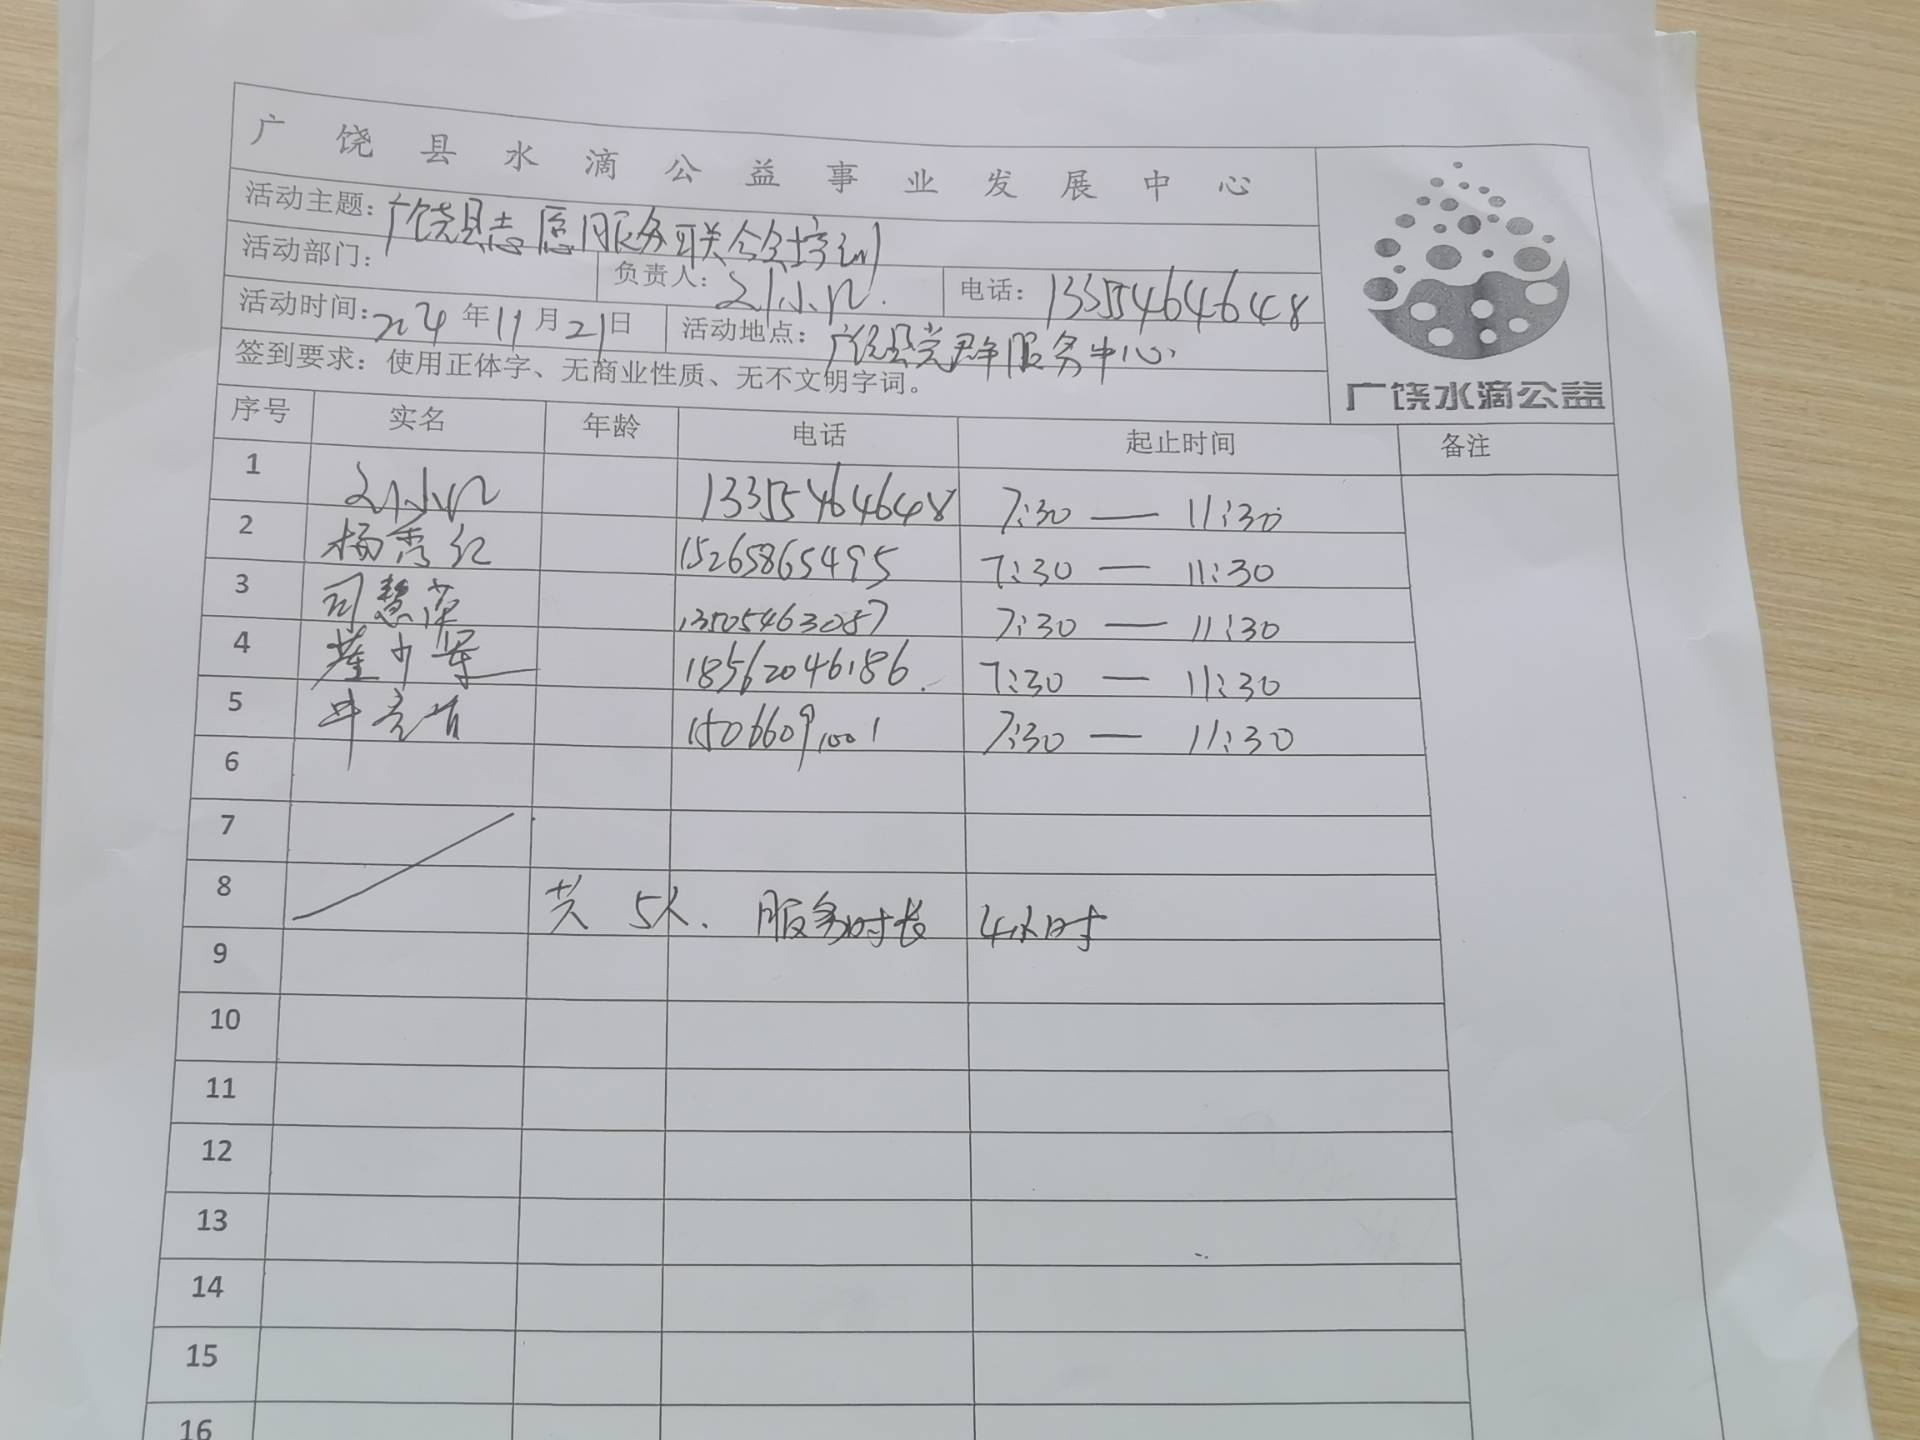 广饶县水滴公益事业发展中心
活动主题：广饶县志愿服务联合会培训
活动部门： 负责人：刘小 电话：13355464648
活动时间：2024年11月21日 活动地点：广饶县党群服务中心
签到要求：使用正体字、无商业性质、无不文明字词。
广饶水滴公益
序号 实名 年龄 电话 起止时间 备注
1 刘小 13355464648 7:30 — 11:30
2 杨秀红 15265865495 7:30 — 11:30
3 司慧萍 13505463087 7:30 — 11:30
4 18562046186. 7:30 — 11:30
5 15066091001 7:30 — 11:30
6
7
8 共 5人. 服务时长 4小时
9
10
11
12
13
14
15
16